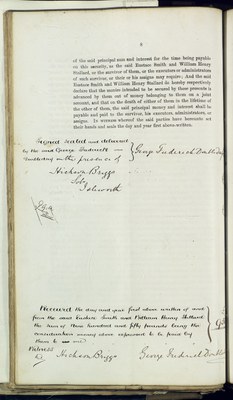 8
of the said principal sum and interest for the time being payable
on this security, as the said Eustace Smith and William Henry
Stallard, or the survivor of them, or the executors or administrators
of such survivor, or their or his assigns may require: And the said
Eustace Smith and William Henry Stallard do hereby respectively
declare that the monies intended to be secured by these presents is
advanced by them out of money belonging to them on a joint
account, and that on the death of either of them in the lifetime of
the other of them, the said principal money and interest shall be
payable and paid to the survivor, his executors, administrators, or
assigns. In witness whereof the said parties have hereunto set
their hands and seals the day and year first above-written.
Signed sealed and delivered
by the said George Frederick
in the presence of
George Frederick
Briggs
Solr
Isleworth
Received the day and year first above written of and
from the said Eustace Smith and William Henry Stallard
the sum of Nine hundred and fifty pounds being the
consideration money above expressed to be paid by
them to me
Witness
Briggs
George Frederick